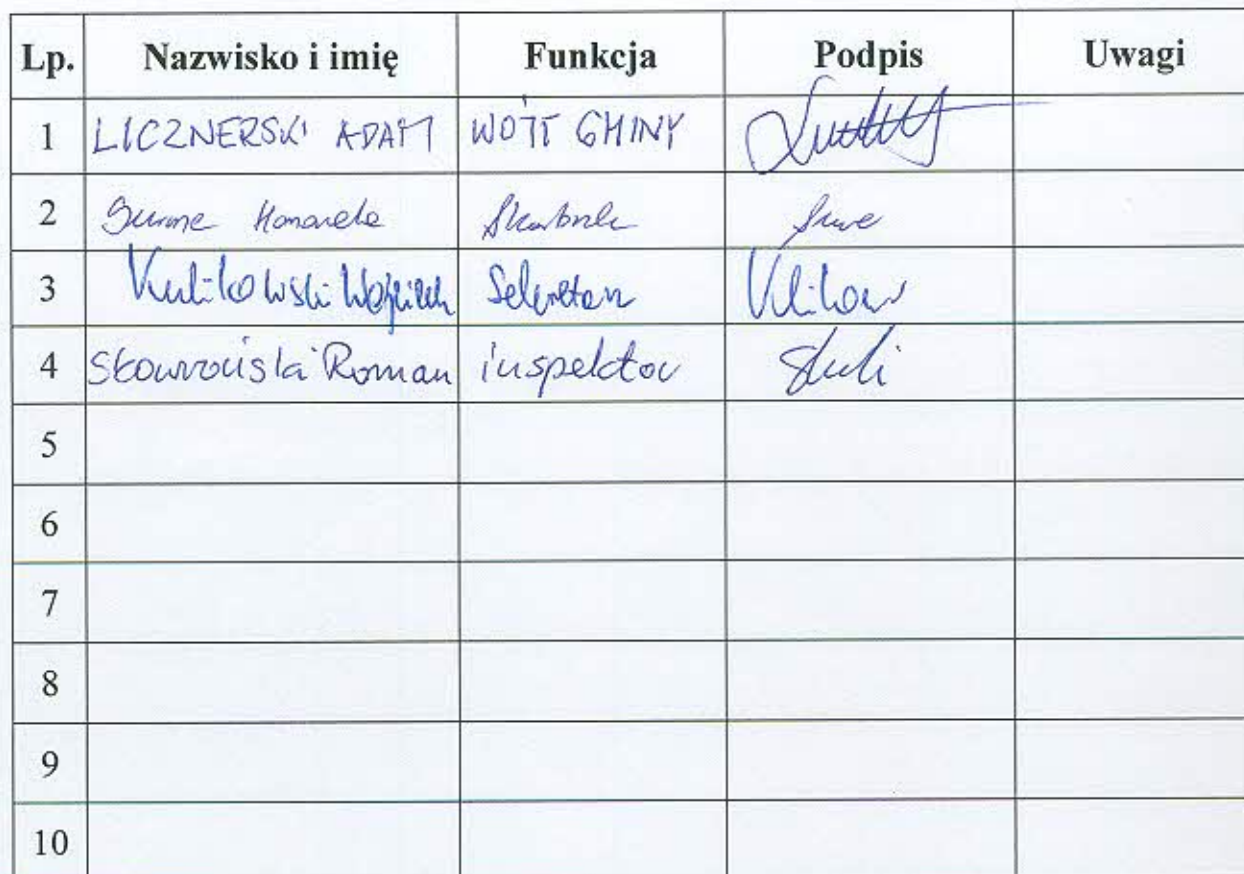 Lp. Nazwisko i imię Funkcja Podpis Uwagi
1 LICZNERSKI ADAM WÓJT GMINY
2 Skarbnik
3 Kulikowski Wojciech Sekretarz
4 Roman inspektor
5
6
7
8
9
10